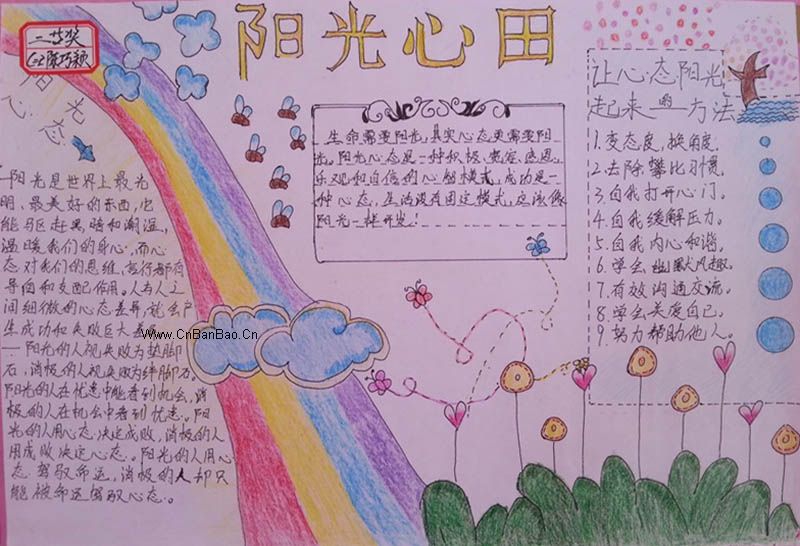 阳光心田
二等奖
G2陈巧颖
阳光
心态
阳光是世界上最光
明、最美好的东西,它
能驱赶黑暗和潮湿,
温暖我们的身心,而心
态对我们的思维、言行都有
导向和支配作用。人与人之
间细微的心态差异,就会产
生成功和失败巨大差异
一阳光的人视失败为垫脚
石,消极的人视失败为绊脚石。
阳光的人在忧患中能看到机会,消
极的人在机会中看到忧患。阳
光的人用心态决定成败,消极的人
用成败决定心态。阳光的人用心
态驾驭命运,消极的人却只
能被命运驾驭心态。
Www.CnBanBao.Cn
生命需要阳光,其实心态更需要阳
光。阳光心态是一种积极、宽容、感恩、
乐观和自信的心智模式,成功是一
种心态,生活没有固定模式,应该像
阳光一样开发!
让心态阳光
起来的方法
1.变态度,换角度.
2.去除攀比习惯.
3.自我打开心门.
4.自我缓解压力.
5.自我内心和谐.
6.学会幽默风趣.
7.有效沟通交流.
8.学会关爱自己.
9.努力帮助他人.